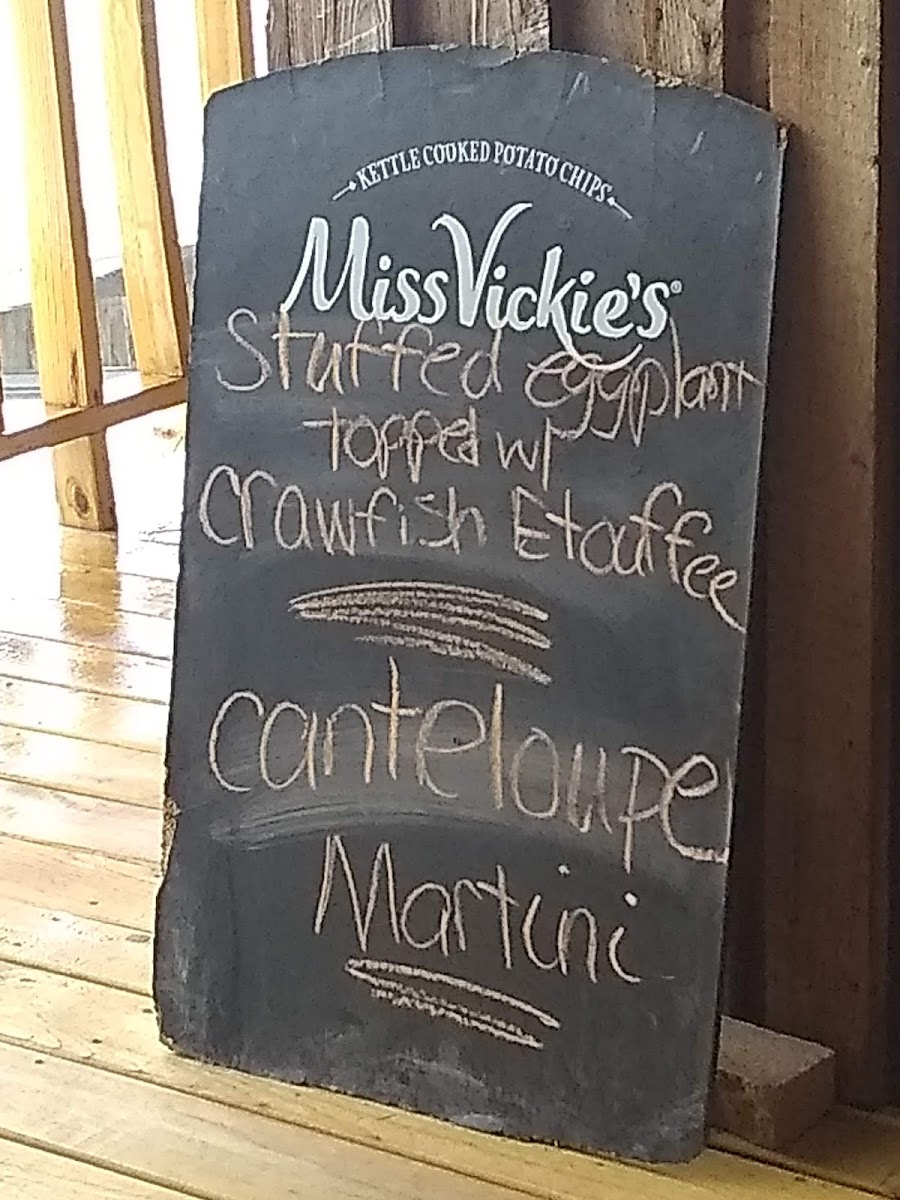 KETTLE COOKED POTATO CHIPS
Miss Vickie's®
Stuffed eggplant
topped w/
Crawfish Etouffee
Canteloupe
Martini